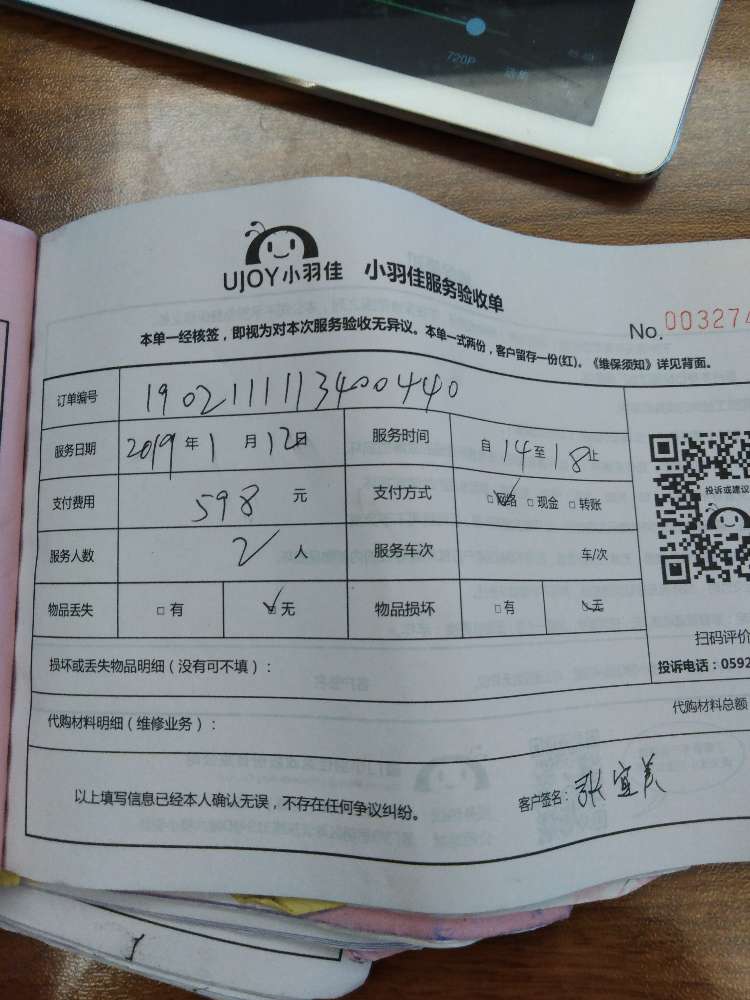 720P 选集
UJOY小羽佳 小羽佳服务验收单
No. 003274
本单一经核签，即视为对本次服务验收无异议。本单一式两份，客户留存一份(红)。《维保须知》详见背面。
订单编号 19021111113400440
服务日期 2019年1月12日 服务时间 自14至18止
支付费用 598元 支付方式 □网络 □现金 □转账
服务人数 2人 服务车次 车/次
物品丢失 □有 □无 物品损坏 □有 □无
投诉或建议
扫码评价
投诉电话：0592
损坏或丢失物品明细（没有可不填）：
代购材料明细（维修业务）： 代购材料总额
以上填写信息已经本人确认无误，不存在任何争议纠纷。 客户签名：张宜美